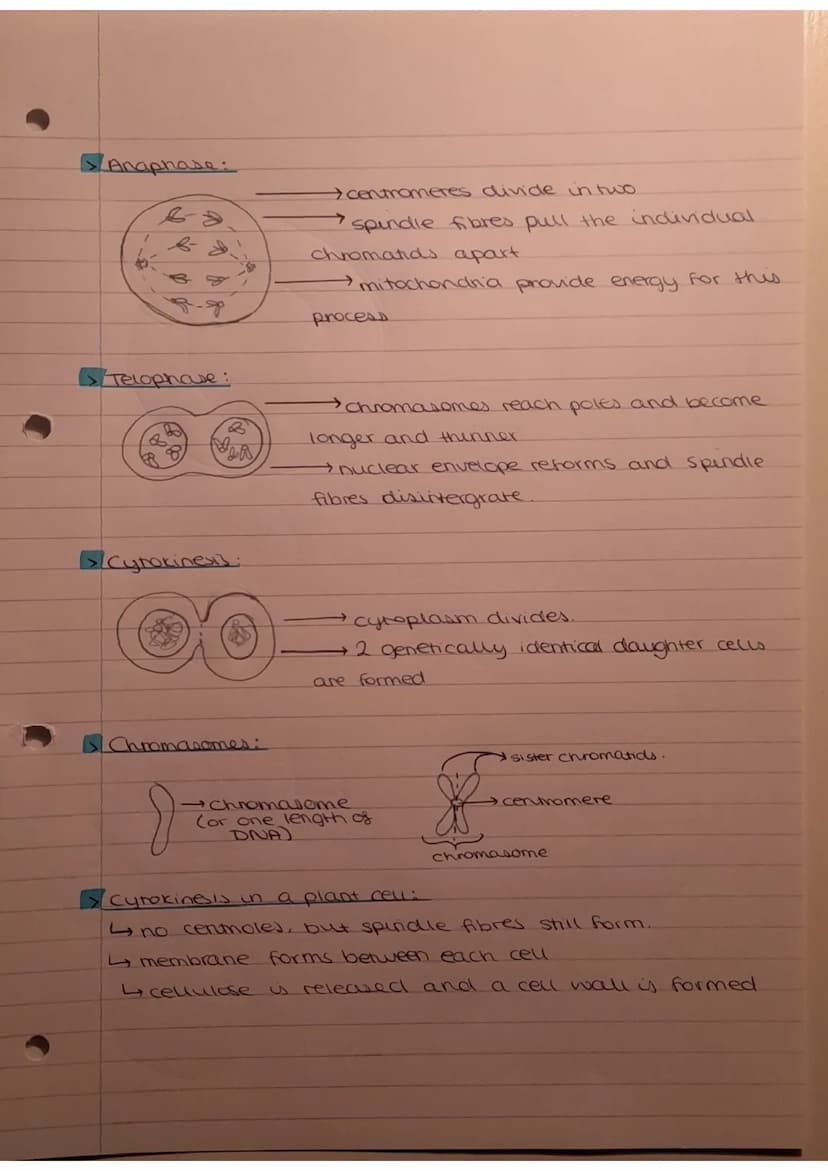 > Anaphase:
→ centromeres divide in two
→ spindle fibres pull the individual
chromatids apart
→ mitochondria provide energy for this
process
> Telophase:
→ chromasomes reach poles and become
longer and thinner
→ nuclear envelope reforms and spindle
fibres disintergrate.
> Cytokinesis:
→ cytoplasm divides.
→ 2 genetically identical daughter cells
are formed
> Chromasomes:
→ sister chromatids.
→ chromasome
(or one length of
DNA)
→ centromere
chromasome
> Cytokinesis in a plant cell:
↳ no centrioles, but spindle fibres still form.
↳ membrane forms between each cell
↳ cellulose is released and a cell wall is formed